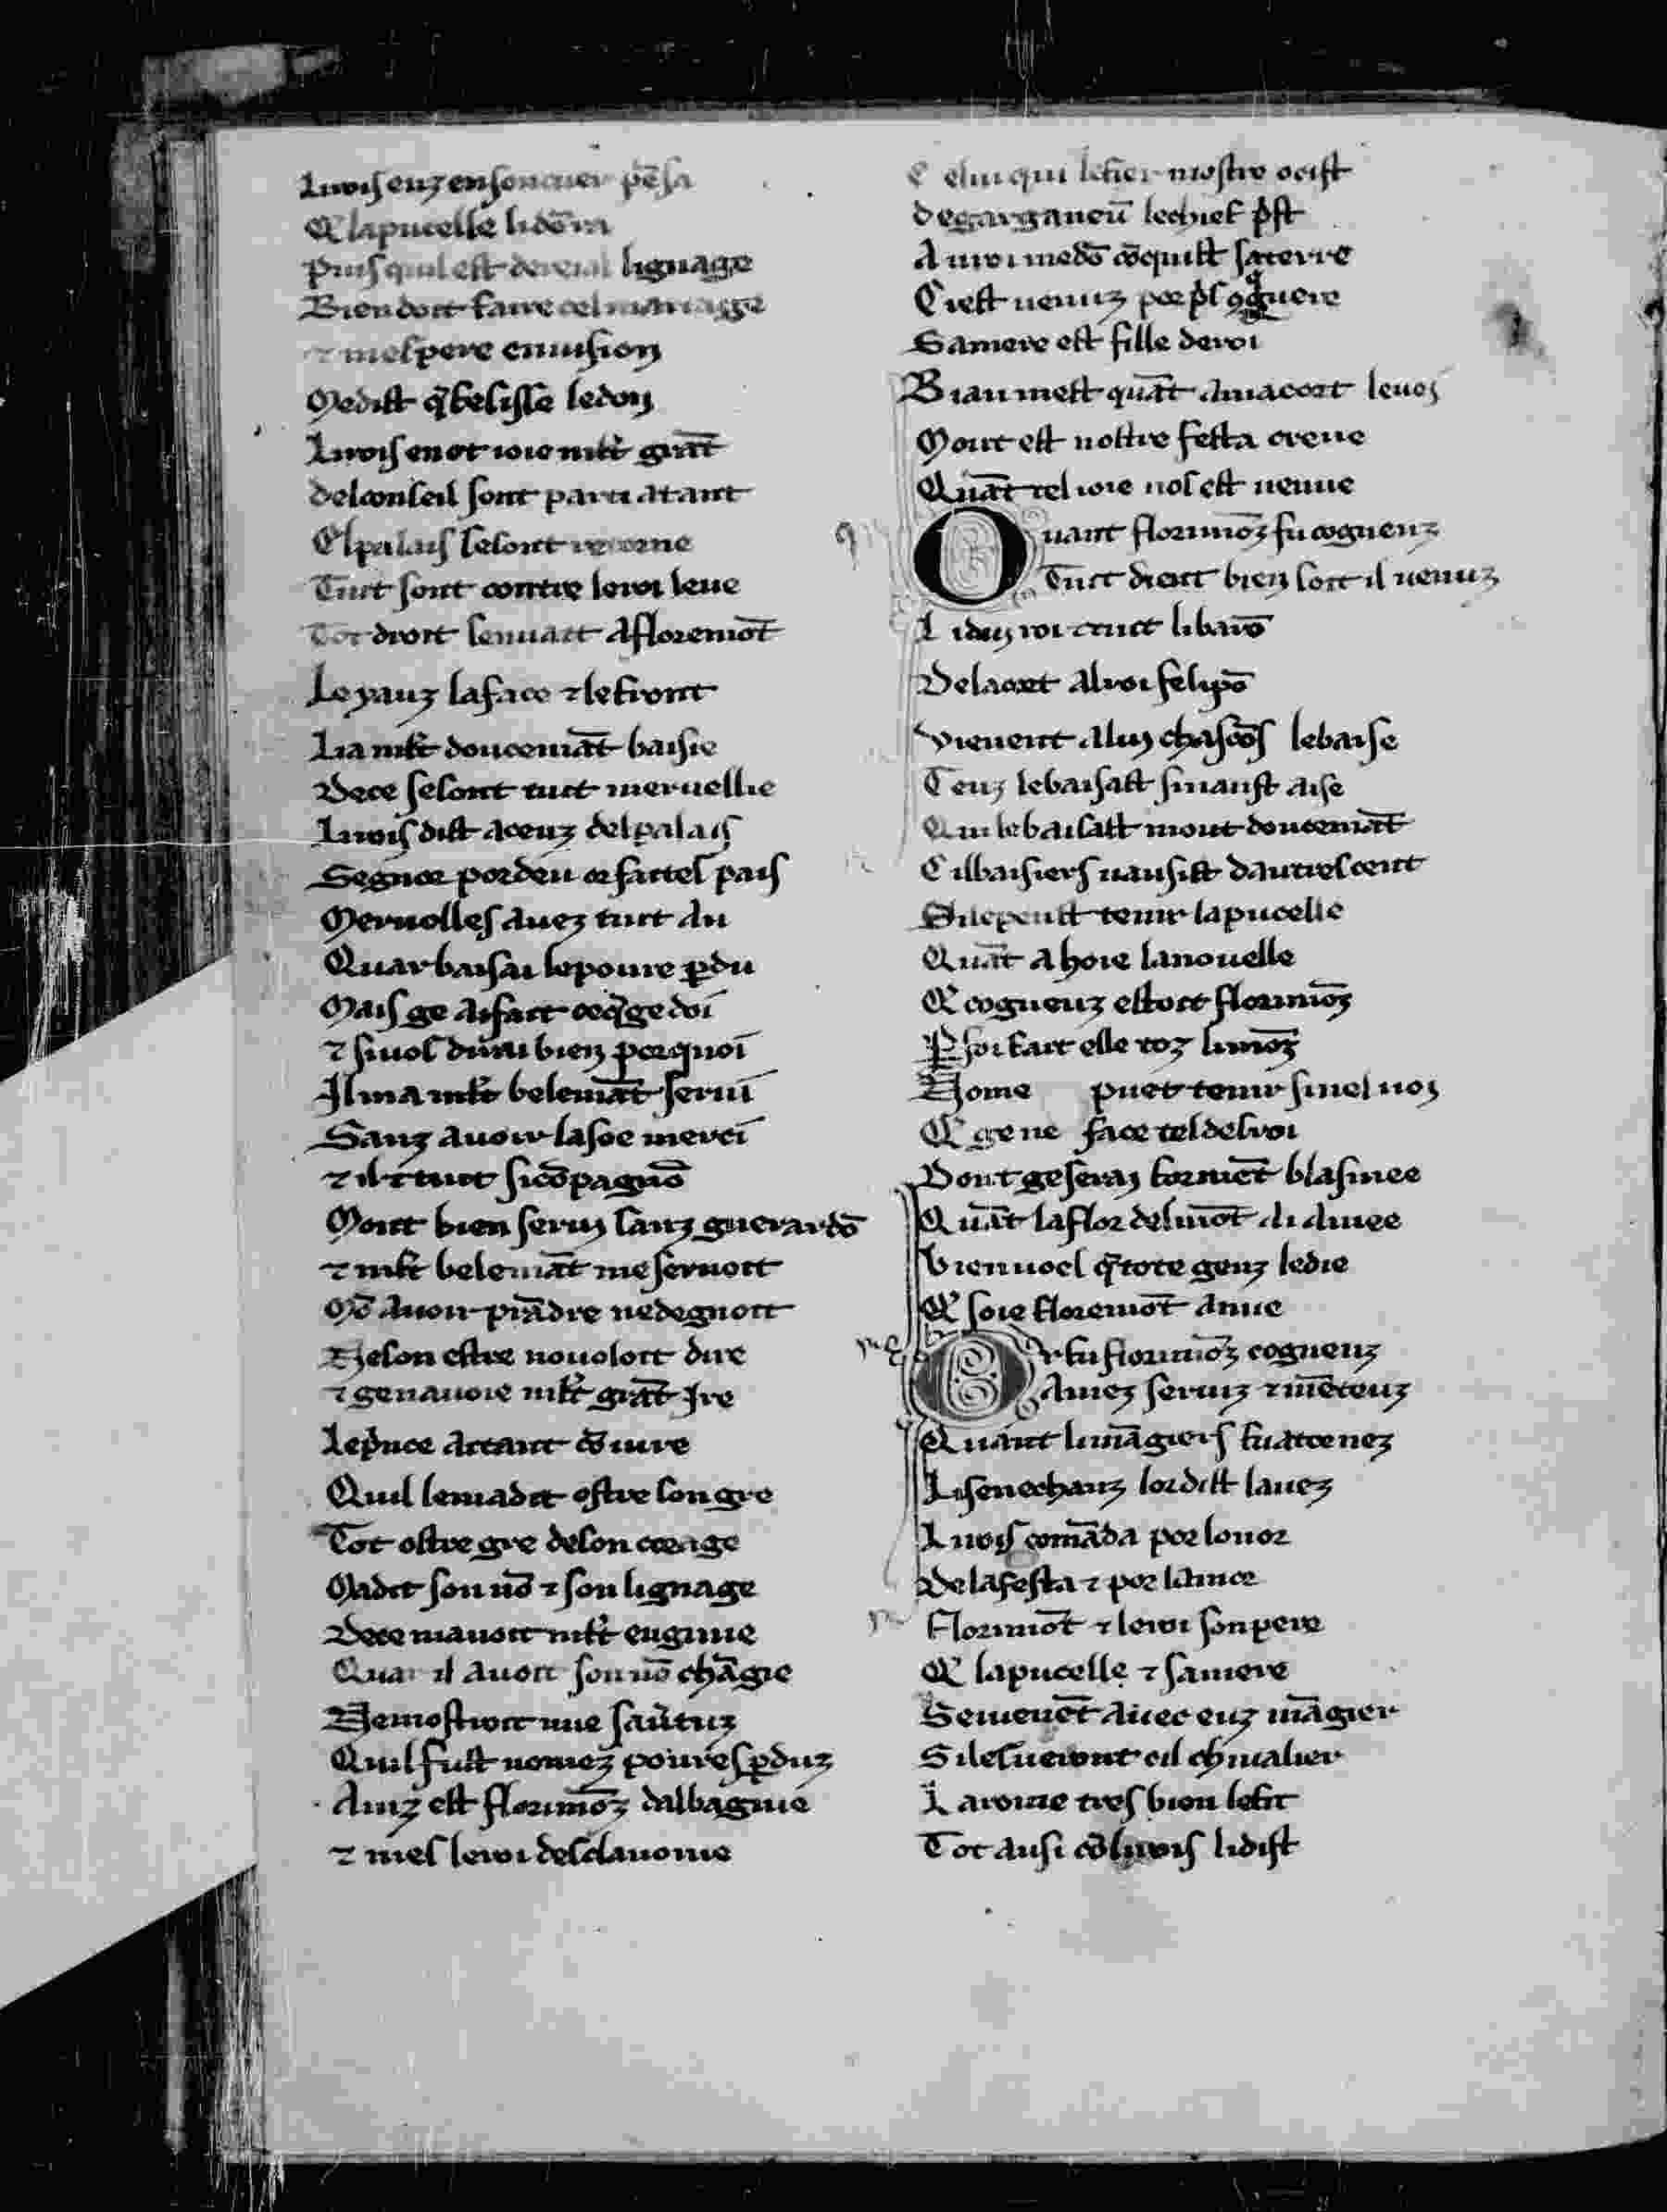 Li rois enz en son cuer pēsa
Q̃ la pucelle li dōra
Puis quil est de reial lignage
Bien doit faire cel mariage
⁊ mes pere en uision
Me dist q̃ felisse le don
Li rois en ot ioie mlt̄ grāt
del conseil sont parti atant
El palais se sont
Tuit sont contre le roi leue
Tot droit sen uait a floremōt
Le yauz la face ⁊ le front
Li a mlt̄ doucemāt baisie
De ce se sont tuit meruellie
Li rois dist a ceuz del palais
Segnor por deu or faites pais
Meruolles auez tuit du
Quar baisai le poure ꝑdu
Mais ge ai fait ce q̃ ge doi
⁊ si uos dirai bien porquoi
Il ma mlt̄ belemāt serui
Sanz auoir la soe merci
⁊ il ⁊ tuit si cōpagnō
Mont bien serui sanz guerardō
⁊ mlt̄ belemāt me seruoit
Mō auoir prādre ne degnoit
Ne son estre no uoloit dire
⁊ ge nauoie mlt̄ grāt ire
Le prince attant cōiure
Quil lema dit ostre son gre
Tot ostre gre de son corage
Ma dit son nō ⁊ son lignage
De ce mauoit mlt̄ engignie
Quar il auoit son nō chāgie
Nemostroit
Quil fust nomez poures ꝑduz
Ainz est florimōz dalbagnie
⁊ mes le roi desclauonie
Celui qui le fier mostre ocist
de garganeū le chief prist
Au roi medō cōquist sa terre
Ci est uenuz por pris ꝯquere
Sa mere est fille de roi
Biau mest quāt a ma cort le uoi
Mout est nostre festa creue
Quāt tel ioie nos est uenue
Quant florimōz fu cogneuz
Tuit dient bien soit il uenuz
Li dui roi ⁊ tuit li barō
De la cort al roi felipō
Vienent a lui chascōs le baise
Teuz le baisast
Qui le baisast mout doucemāt
Cil baisiers uausist dautres cent
Si le peust tenir la pucelle
Quāt a hoie la nouelle
Q̃ cogneuz estoit florimōz
P soi fait elle toz li mōz
Nome puet tenir
Q̃ ge ne face tel desroi
Dont ge serai formēt blasmee
Quāt la flor del mōt ai amee
Bien uoel q̃ tote genz le die
Q̃ soie floremōt amie
Or fu florimōz cogneuz
Amez seruiz ⁊
Quant li māgiers fu atornez
Li senechauz lor dist lauez
Li rois comāda por lonor
De la festa ⁊ por lamor
Florimōt ⁊ le roi son pere
Q̃ la pucelle ⁊ sa mere
Se menēt auec euz māgier
Si le cil cheualier
La roine tres bien le fit
Tot ausi cō li rois li dist